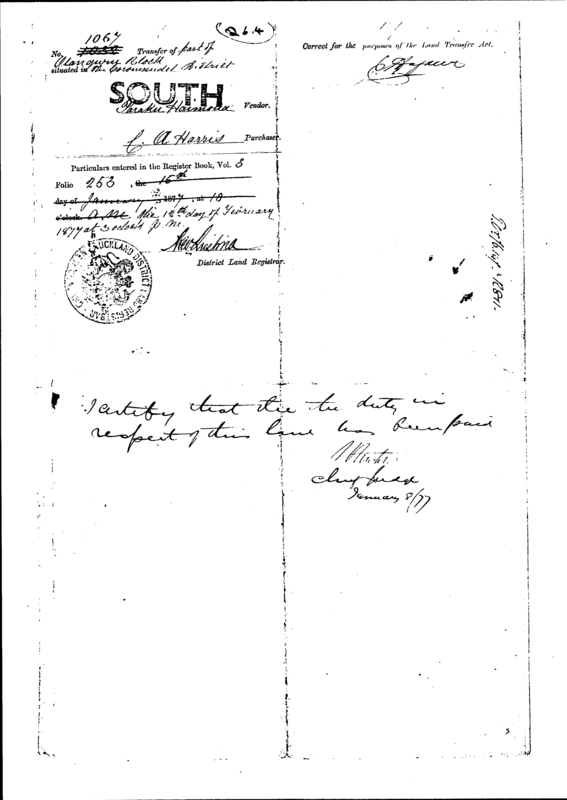 1067
(264)
No. 1032 Transfer of part of
Block
situated in the Coromandel District
SOUTH
Taraku Haimona Vendor.
C. A Harris Purchaser.
Particulars entered in the Register Book, Vol. 3
Folio 253, the 16th
day of January, 1877, at 10
o'clock A.M. the 12th day of February
1877 at 3 oclock p.m.
District Land Registrar.
AUCKLAND DISTRICT LAND REGISTRAR
Correct for the purposes of the Land Transfer Act.
I certify that the duty in
respect of this has been paid
January 8/77